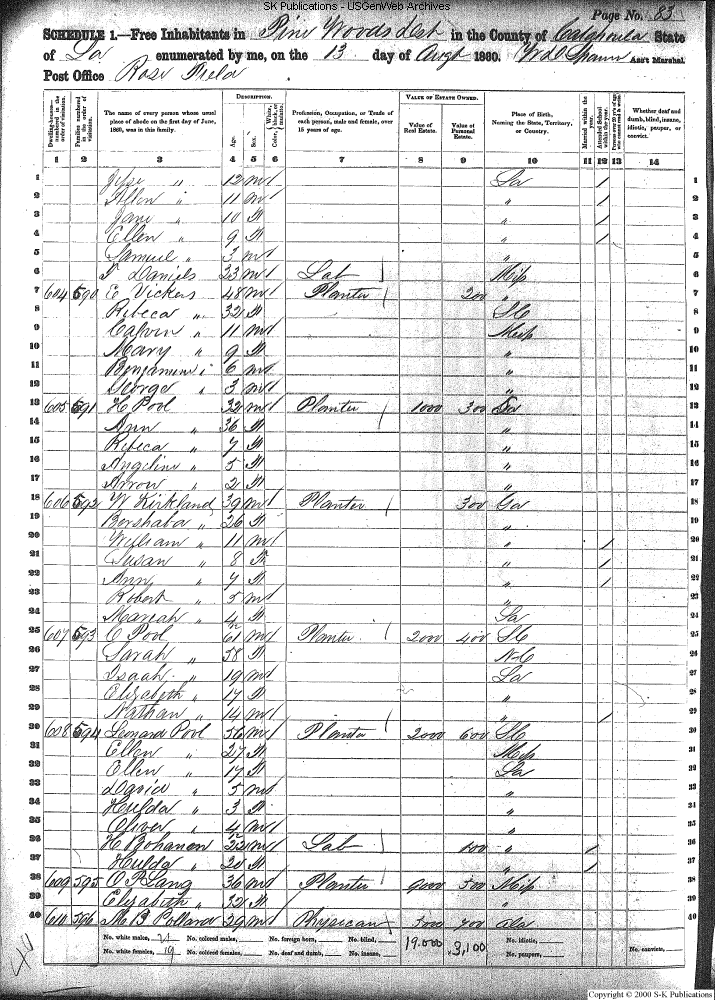 SK Publications - USGenWeb Archives
Page No. 83
SCHEDULE 1.—Free Inhabitants in Pine Woods Dist in the County of Catahoula State
of La enumerated by me, on the 13 day of Augt 1860. Ass't Marshal.
Post Office Rose Field
Dwelling-houses—numbered in the order of visitation.
Families numbered in the order of visitation.
The name of every person whose usual place of abode on the first day of June, 1860, was in this family.
DESCRIPTION.
Age.
Sex.
Color, White, black, or mulatto.
Profession, Occupation, or Trade of each person, male and female, over 15 years of age.
VALUE OF ESTATE OWNED.
Value of Real Estate.
Value of Personal Estate.
Place of Birth, Naming the State, Territory, or Country.
Married within the year.
Attended School within the year.
Persons over 20 y'rs of age who cannot read & write.
Whether deaf and dumb, blind, insane, idiotic, pauper, or convict.
1 2 3 4 5 6 7 8 9 10 11 12 13 14
1 Jesse " 12 m La / 1
2 Allen " 11 m " / 2
3 Jane " 10 f " / 3
4 Ellen " 9 f " / 4
5 Samuel " 3 m " 5
6 Daniels 23 m Lab Miss 6
7 604 590 E Vickers 48 m Planter 200 " 7
8 Rebeca " 32 f SC 8
9 Calvin " 11 m Miss 9
10 Mary " 9 f " 10
11 Benjamin " 6 m " 11
12 George " 3 m " 12
13 605 591 H Pool 32 m Planter 1000 300 La 13
14 Ann " 36 f " 14
15 Rebeca " 7 f " 15
16 Angeline " 5 f " 16
17 Arrow " 2 f " 17
18 606 592 W Kirkland 39 m Planter 300 Ga 18
19 Bershaba " 26 f " 19
20 William " 11 m " / 20
21 Susan " 8 f " / 21
22 Ann " 7 f " / 22
23 Robert " 5 m " 23
24 Mareah " f La 24
25 607 593 C Pool 61 m Planter 2000 400 SC 25
26 Sarah " 58 f N-C 26
27 Isaah " 19 m La 27
28 Elizabeth " 17 f " 28
29 Nathan " 14 m " / 29
30 608 594 Leonard Pool 36 m Planter 2000 600 SC 30
31 Ellen " 27 f Miss 31
32 Ellen " 17 f La 32
33 David " 5 m " 33
34 Hulda " 3 f " 34
35 Oliver " m " 35
36 H Bohanon 22 m Lab " / 36
37 Hulda " 20 f " / 37
38 609 595 O P Lang 36 m Planter 9000 500 Miss 38
39 Elizabeth " 32 f " 39
40 610 596 M B Pollard 29 m Physican 5000 700 Ala 40
No. white males, 21 No. colored males, No. foreign born, No. blind, 19.000 3,100 No. idiotic,
No. white females, 19 No. colored females, No. deaf and dumb, No. insane, No. paupers, No. convicts,
Copyright © 2000 S-K Publications